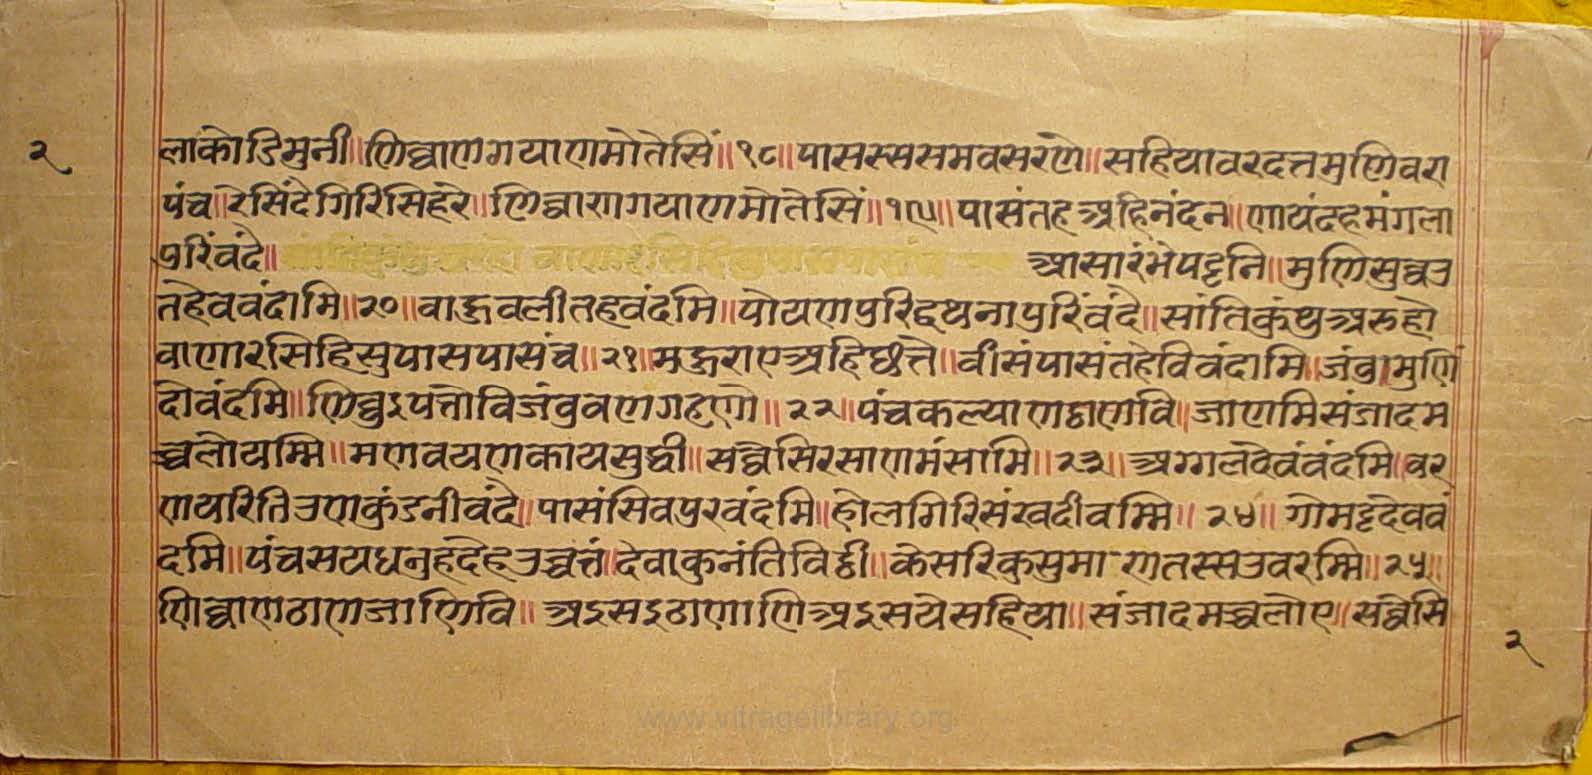 २
लाकोडिमुनी॥णिव्वाणगयाणमोतेसिं॥१८॥पासस्ससमवसरणे॥सहियावरदत्तमुणिवरा
पंच॥रेसिंदेगिरिसिहरे॥णिव्वाणगयाणमोतेसिं॥१९॥पासंतहअहिनंदन॥णायंदहमंगला
पुरिंवंदे॥ आसारंभेपट्टनि॥मुणिसुव्वउ
तहेववंदामि॥२०॥वाहुवलीतहवंदमि॥पोयणपुरिहथनापुरिंवंदे॥सांतिकुंथुअरुहो
वाणारसिहिसुपासपासंच॥२१॥महुराएअहिछत्ते॥वीसंपासंतहेविवंदामि॥जंवुमुणिं
दोवंदमि॥णिव्वुइपत्तोविजंवुवणगहणे॥२२॥पंचकल्याणठाणवि॥जाणमिसंजादम
च्चलोयम्मि॥मणवयणकायसुद्धी॥सव्वेसिरसाणमंसामि॥२३॥अग्गलदेवंवंदमि॥वर
णयरितिउणकुंडनीवंदे॥पासंसिवपुरवंदमि॥होलगिरिसंखदीवम्मि॥२४॥गोमट्टदेववं
दमि॥पंचसयधनुहदेहउच्चत्तं॥देवाकुनंतिविट्ठी॥केसरिकुसुमाणतस्सउवरम्मि॥२५॥
णिव्वाणठाणजाणिवि॥अइसइठाणाणिअइसयेसहिया॥संजादमच्चलोए॥सव्वेसि
२
www.vitragelibrary.org